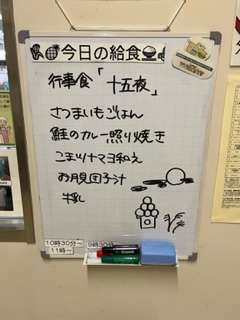 今日の給食
行事食「十五夜」
さつまいもごはん
鮭のカレー照り焼き
こまツナマヨ和え
お月見団子汁
牛乳
10時30分~
11時~
9時30分~